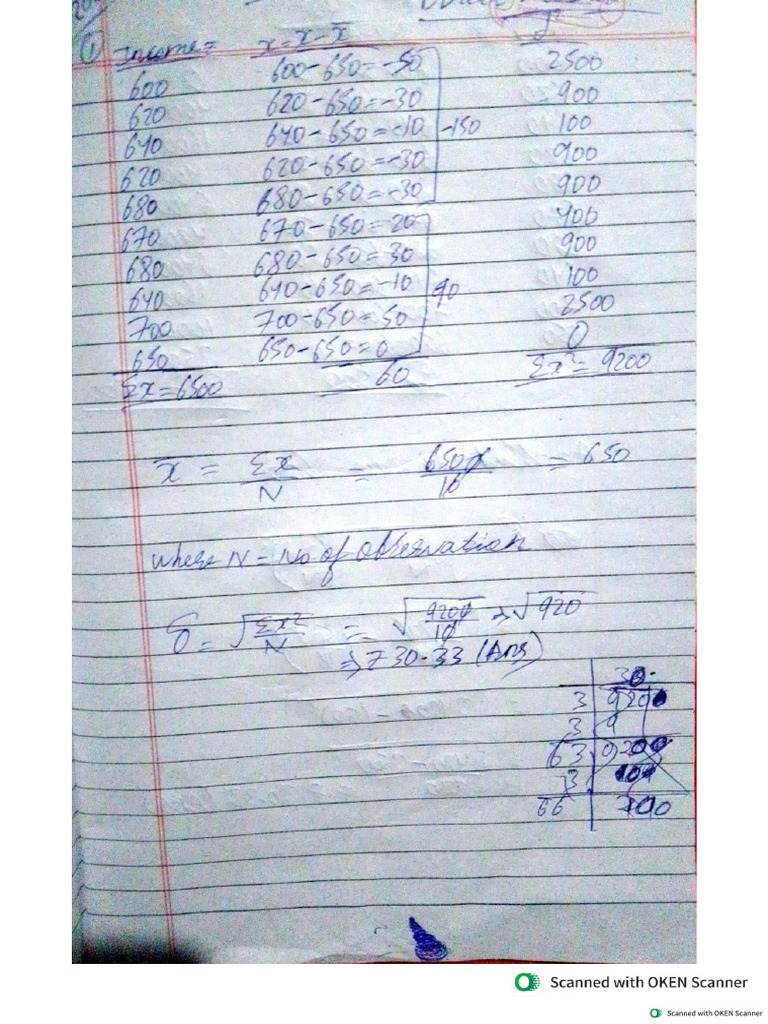 ① Income = x = x - x̄
600 600-650=-50 2500
620 620-650=-30 900
640 640-650=-10 -150 100
620 620-650=-30 900
680 680-650=-30 900
670 670-650=20 400
680 680-650=30 900
640 640-650=-10 90 100
700 700-650=50 2500
650 650-650=0 0
Σx=6500 60 Σx²=9200
x̄ = Σx/N = 6500/10 = 650
where N = No of observation
σ = √Σx²/N = √9200/10 ⇒ √920
⇒ 30.33 (Ans)
30.
3 9200
3 9
63 9200
3
66
Scanned with OKEN Scanner
Scanned with OKEN Scanner